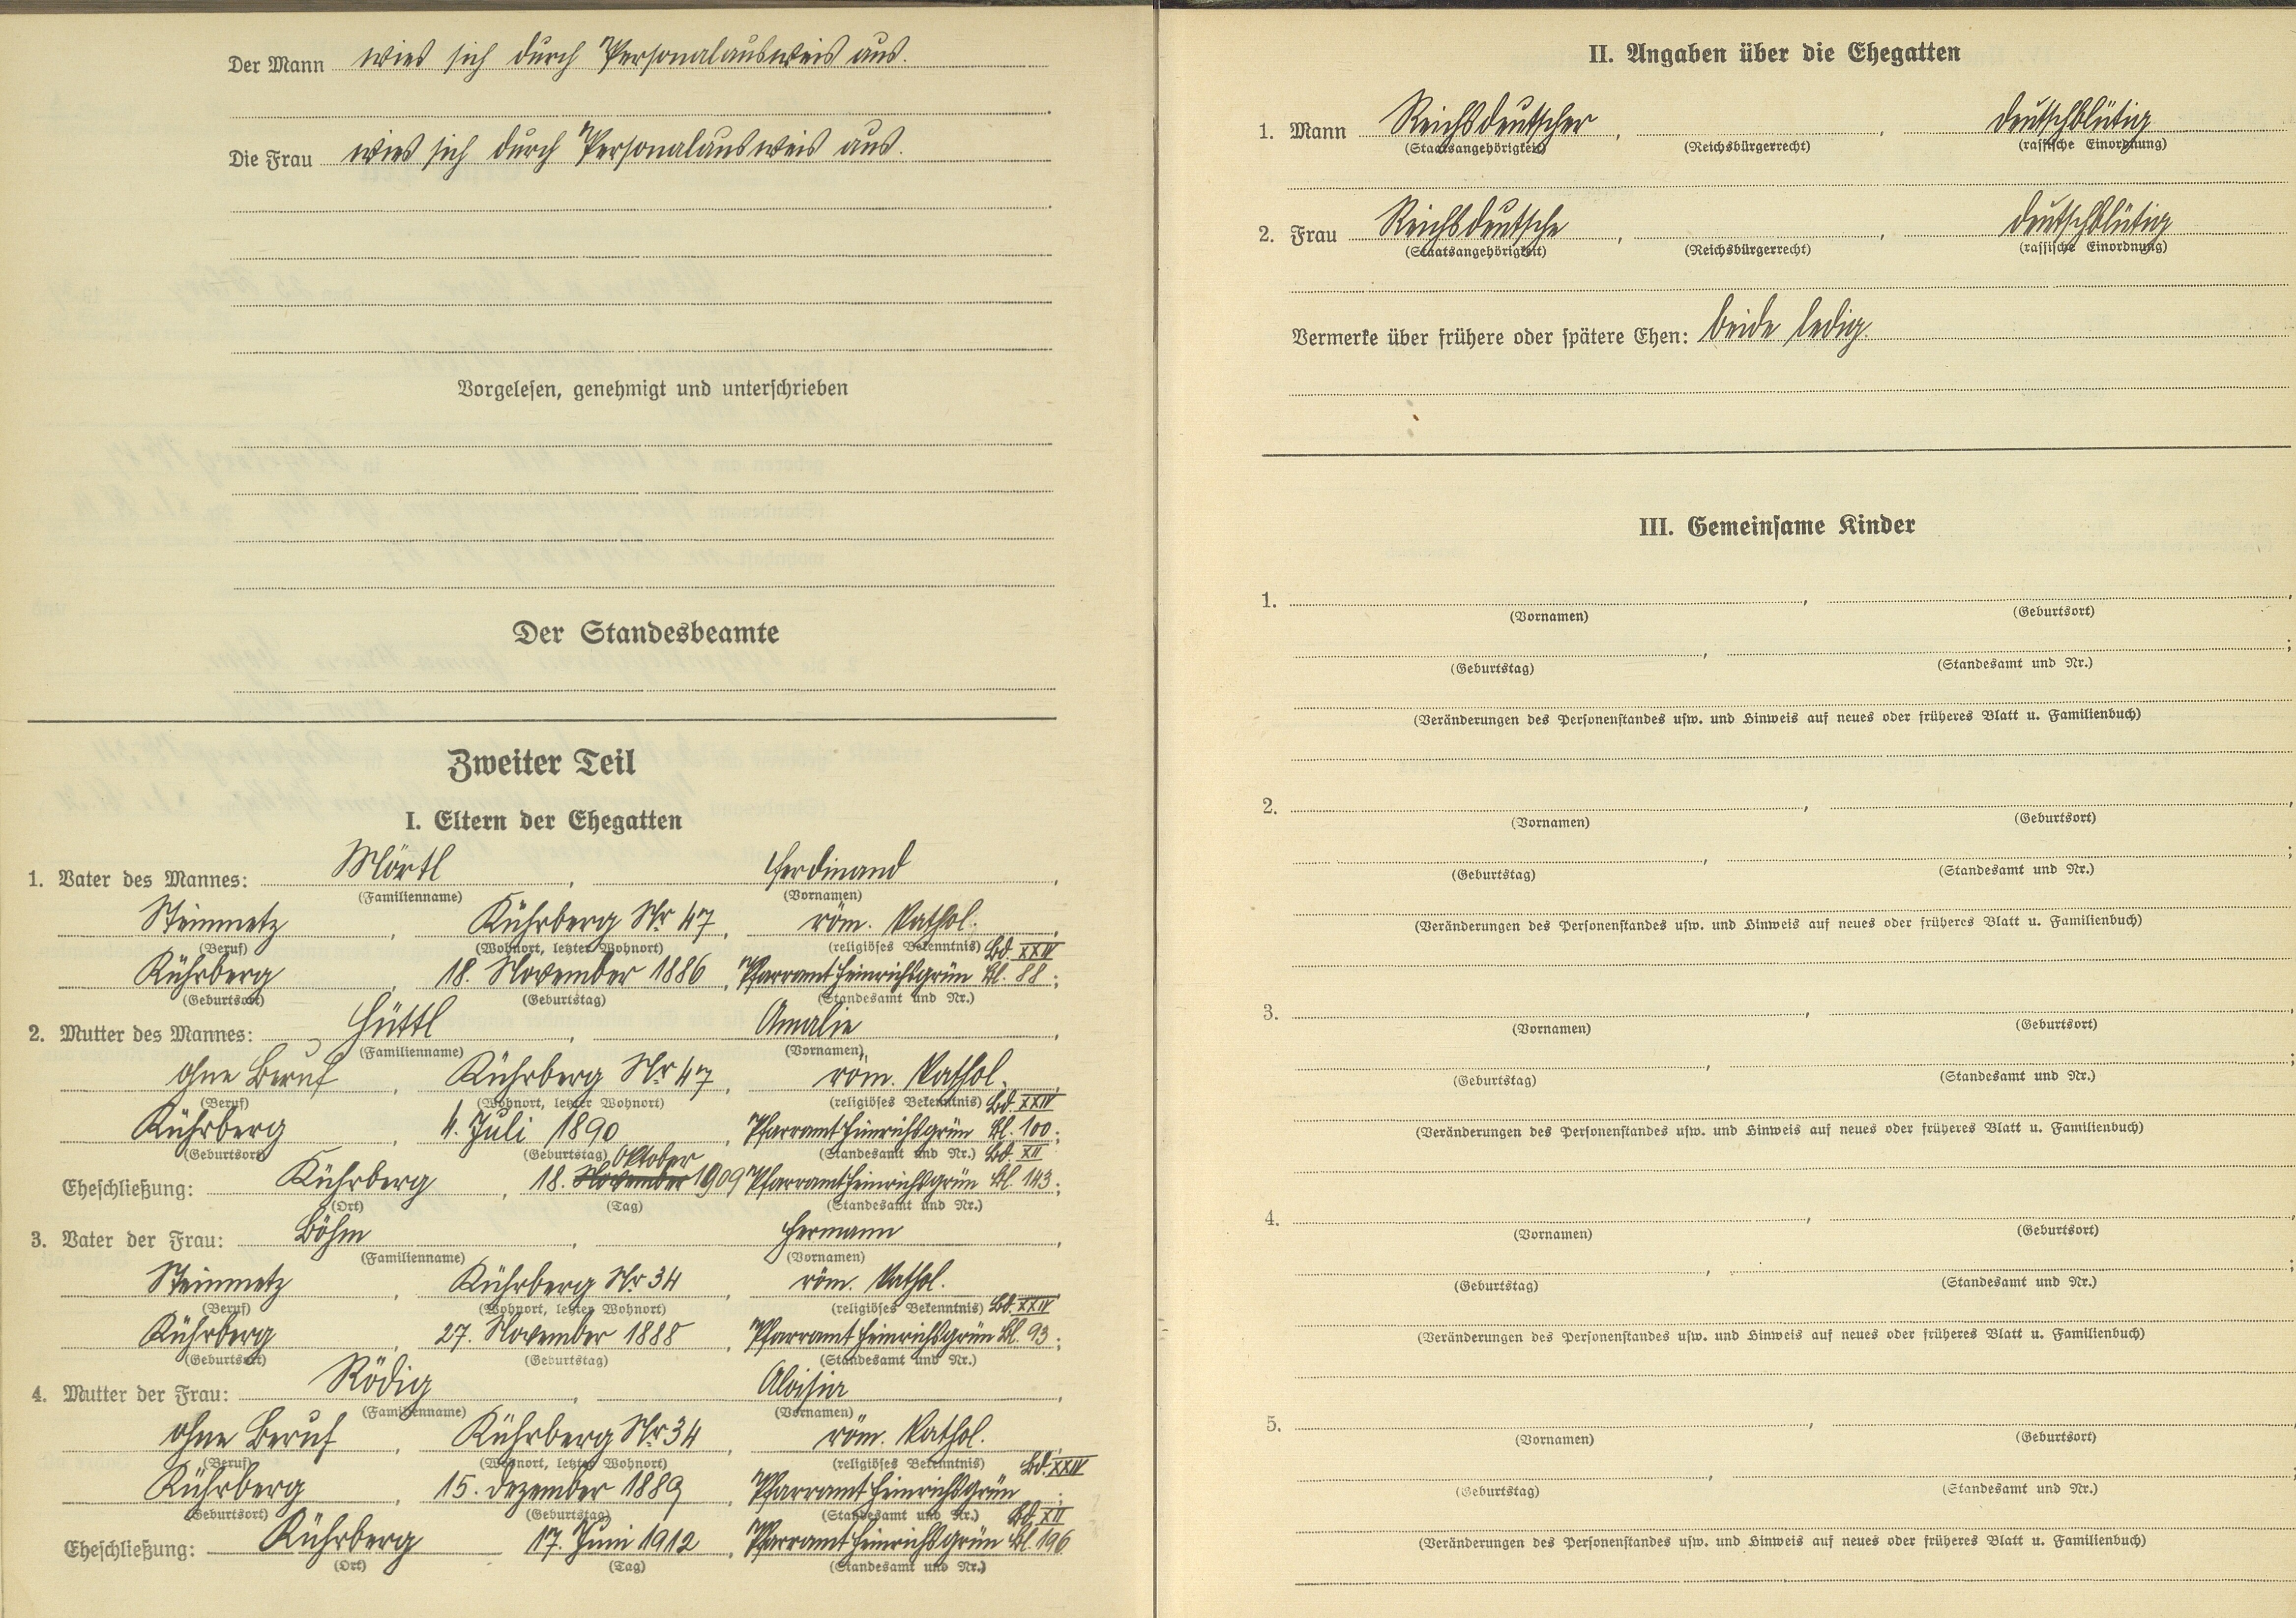 Der Mann wies sich durch Personalausweis aus.
Die Frau wies sich durch Personalausweis aus.
Vorgelesen, genehmigt und unterschrieben
Der Standesbeamte
Zweiter Teil
I. Eltern der Ehegatten
1. Vater des Mannes: Mörtl, Ferdinand,
(Familienname) (Vornamen)
Steinmetz, Kührberg Nr 47, röm. kathol.,
(Beruf) (Wohnort, letzter Wohnort) (religiöses Bekenntnis) Bd. XXIV
Kührberg, 18. November 1886, Pfarramt Heinrichsgrün Bl. 88;
(Geburtsort) (Geburtstag) (Standesamt und Nr.)
2. Mutter des Mannes: Hüttl, Amalie,
(Familienname) (Vornamen)
ohne Beruf, Kührberg Nr 47, röm. kathol.,
(Beruf) (Wohnort, letzter Wohnort) (religiöses Bekenntnis) Bd. XXIV
Kührberg, 4. Juli 1890, Pfarramt Heinrichsgrün Bl. 100;
(Geburtsort) (Geburtstag) Oktober (Standesamt und Nr.) Bd. XII
Eheschließung: Kührberg, 18. November 1909 Pfarramt Heinrichsgrün Bl. 143;
(Ort) (Tag) (Standesamt und Nr.)
3. Vater der Frau: Böhm, Hermann,
(Familienname) (Vornamen)
Steinmetz, Kührberg Nr 34, röm. kathol.,
(Beruf) (Wohnort, letzter Wohnort) (religiöses Bekenntnis) Bd. XXIV
Kührberg, 27. November 1888, Pfarramt Heinrichsgrün Bl. 93;
(Geburtsort) (Geburtstag) (Standesamt und Nr.)
4. Mutter der Frau: Rödig, Aloisia,
(Familienname) (Vornamen)
ohne Beruf, Kührberg Nr 34, röm. kathol.,
(Beruf) (Wohnort, letzter Wohnort) (religiöses Bekenntnis) Bd. XXIV
Kührberg, 15. Dezember 1889, Pfarramt Heinrichsgrün;
(Geburtsort) (Geburtstag) (Standesamt und Nr.) Bd. XII
Eheschließung: Kührberg 17. Juni 1912, Pfarramt Heinrichsgrün Bl. 196
(Ort) (Tag) (Standesamt und Nr.)
II. Angaben über die Ehegatten
1. Mann Reichsdeutscher, , deutschblütig
(Staatsangehörigkeit) (Reichsbürgerrecht) (rassische Einordnung)
2. Frau Reichsdeutsche, , deutschblütig
(Staatsangehörigkeit) (Reichsbürgerrecht) (rassische Einordnung)
Vermerke über frühere oder spätere Ehen: beide ledig.
III. Gemeinsame Kinder
1. , ,
(Vornamen) (Geburtsort)
, ;
(Geburtstag) (Standesamt und Nr.)
(Veränderungen des Personenstandes usw. und Hinweis auf neues oder früheres Blatt u. Familienbuch)
2. , ,
(Vornamen) (Geburtsort)
, ;
(Geburtstag) (Standesamt und Nr.)
(Veränderungen des Personenstandes usw. und Hinweis auf neues oder früheres Blatt u. Familienbuch)
3. , ,
(Vornamen) (Geburtsort)
, ;
(Geburtstag) (Standesamt und Nr.)
(Veränderungen des Personenstandes usw. und Hinweis auf neues oder früheres Blatt u. Familienbuch)
4. , ,
(Vornamen) (Geburtsort)
, ;
(Geburtstag) (Standesamt und Nr.)
(Veränderungen des Personenstandes usw. und Hinweis auf neues oder früheres Blatt u. Familienbuch)
5. , ,
(Vornamen) (Geburtsort)
, ;
(Geburtstag) (Standesamt und Nr.)
(Veränderungen des Personenstandes usw. und Hinweis auf neues oder früheres Blatt u. Familienbuch)